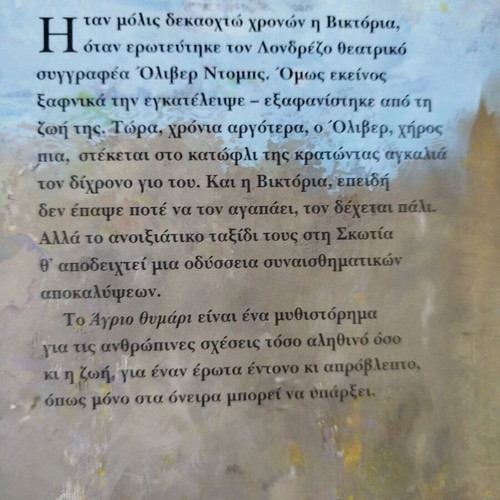 Ηταν μόλις δεκαοχτώ χρονών η Βικτόρια,
όταν ερωτεύτηκε τον Λονδρέζο θεατρικό
συγγραφέα Όλιβερ Ντομπς. Όμως εκείνος
ξαφνικά την εγκατέλειψε – εξαφανίστηκε από τη
ζωή της. Τώρα, χρόνια αργότερα, ο Όλιβερ, χήρος
πια, στέκεται στο κατώφλι της κρατώντας αγκαλιά
τον δίχρονο γιο του. Και η Βικτόρια, επειδή
δεν έπαψε ποτέ να τον αγαπάει, τον δέχεται πάλι.
Αλλά το ανοιξιάτικο ταξίδι τους στη Σκωτία
θ' αποδειχτεί μια οδύσσεια συναισθηματικών
αποκαλύψεων.
Το Άγριο θυμάρι είναι ένα μυθιστόρημα
για τις ανθρώπινες σχέσεις τόσο αληθινό όσο
κι η ζωή, για έναν έρωτα έντονο κι απρόβλεπτο,
όπως μόνο στα όνειρα μπορεί να υπάρξει.